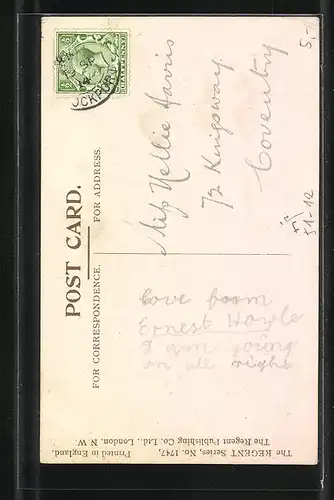 POST CARD.
FOR CORRESPONDENCE.
FOR ADDRESS.
HALFPENNY
OCKPOR
Love from
Ernest Hoyle
I am going
on all right
Miss Nellie Harris
72 Kingsway
Coventry
5,-
51-12
The REGENT Series, No. 1747,
The Regent Publishing Co. Ltd., London, N.W
Printed in England.